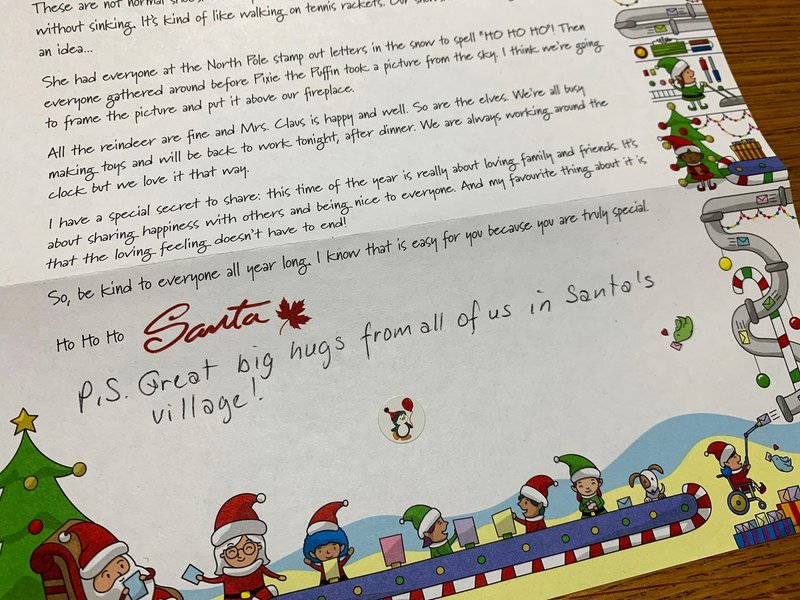 These are not normal
without sinking. It's kind of like walking on tennis rackets. Our
an idea...
She had everyone at the North Pole stamp out letters in the snow to spell "HO HO HO"! Then
everyone gathered around before Pixie the Puffin took a picture from the sky. I think we're going
to frame the picture and put it above our fireplace.
All the reindeer are fine and Mrs. Claus is happy and well. So are the elves. We're all busy
making toys and will be back to work tonight, after dinner. We are always working around the
clock but we love it that way.
I have a special secret to share: this time of the year is really about loving family and friends. It's
about sharing happiness with others and being nice to everyone. And my favourite thing about it is
that the loving feeling doesn't have to end!
So, be kind to everyone all year long. I know that is easy for you because you are truly special.
Ho Ho Ho Santa
P.S. Great big hugs from all of us in Santa's
village!